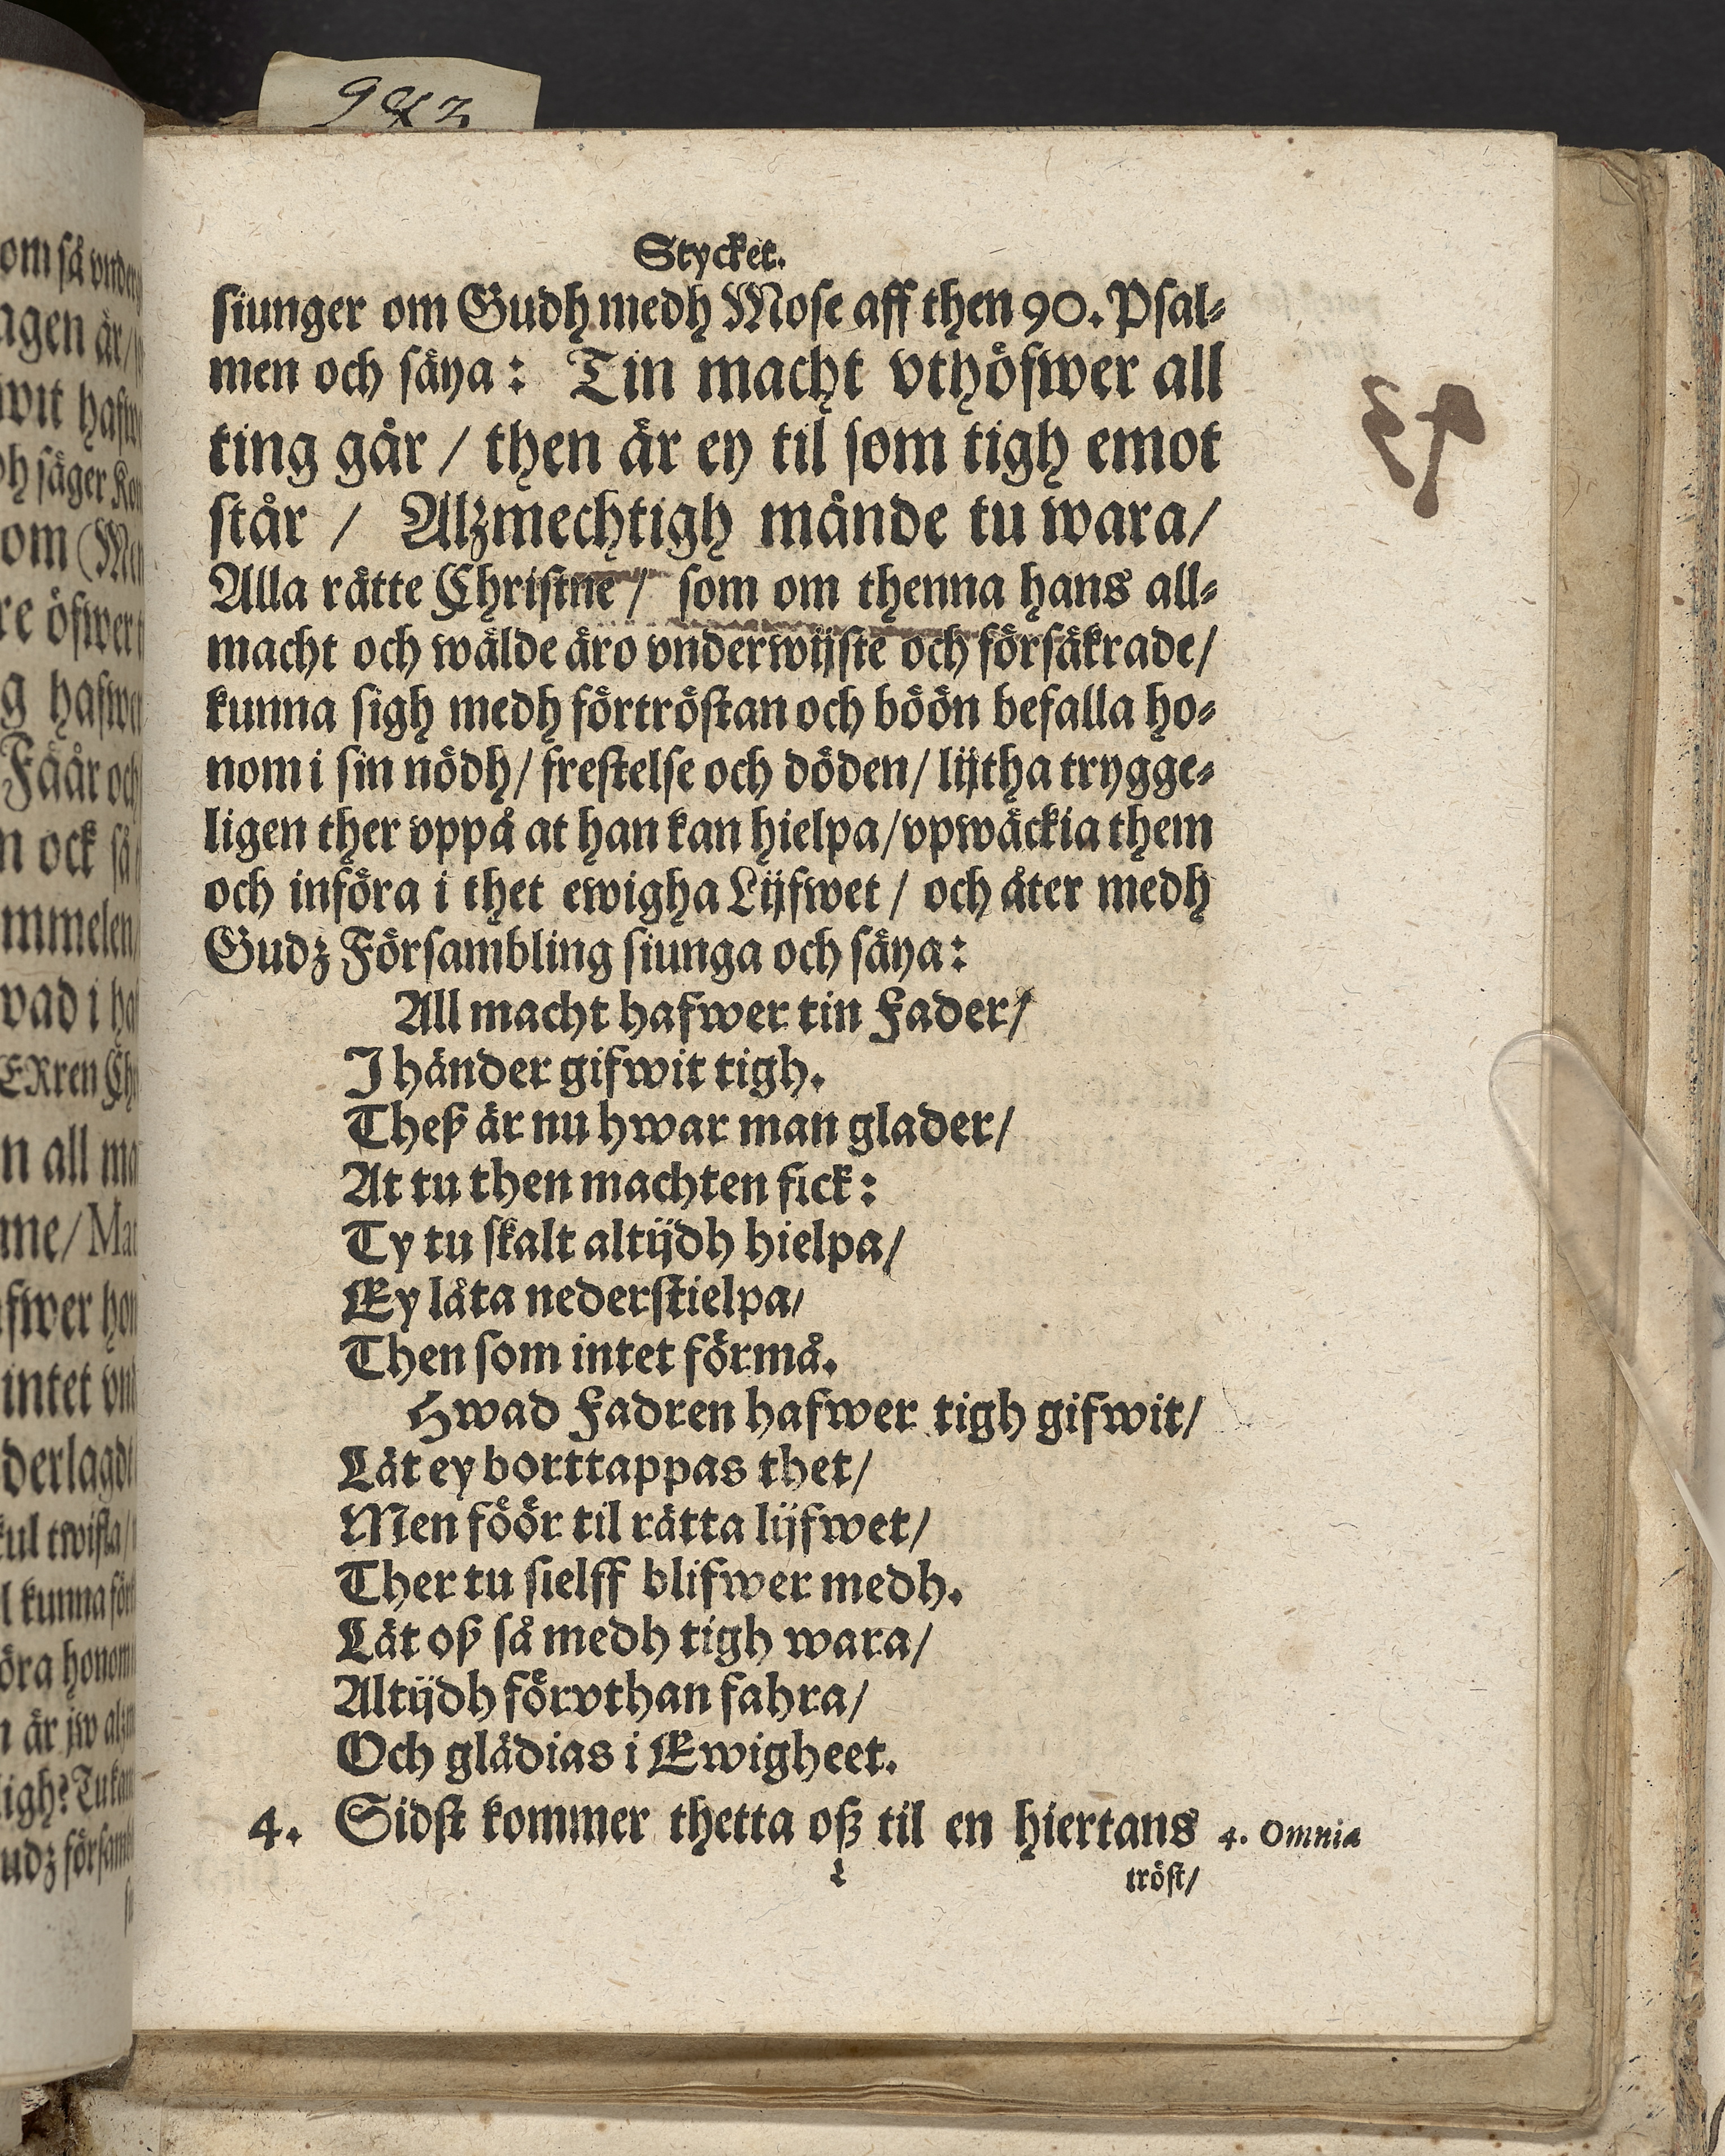 Stycket.
siunger om Gudh medh Mose aff then 90. Psal-
men och säya: Tin macht vthöfwer all
ting går / then är ey til som tigh emot
står / Alzmechtigh månde tu wara/
Alla rätte Christne / som om thenna hans all-
macht och wälde äro vnderwijste och försäkrade/
kunna sigh medh förtröstan och böön befalla ho-
nom i sin nödh/ frestelse och döden/ lijtha trygge-
ligen ther vppå at han kan hielpa/vpwäckia them
och införa i thet ewigha Lijfwet / och åter medh
Gudz Försambling siunga och säya:
All macht hafwer tin Fader/
I händer gifwit tigh.
Theß är nu hwar man glader/
At tu then machten fick:
Ty tu skalt altijdh hielpa/
Ey låta nederstielpa/
Then som intet förmå.
Hwad Fadren hafwer tigh gifwit/
Lät ey borttappas thet/
Men föör til rätta lijfwet/
Ther tu sielff blifwer medh.
Lät oß så medh tigh wara/
Altijdh förvthan fahra/
Och glädias i Ewigheet.
4. Sidst kommer thetta oß til en hiertans 4. Omnia
tröst/